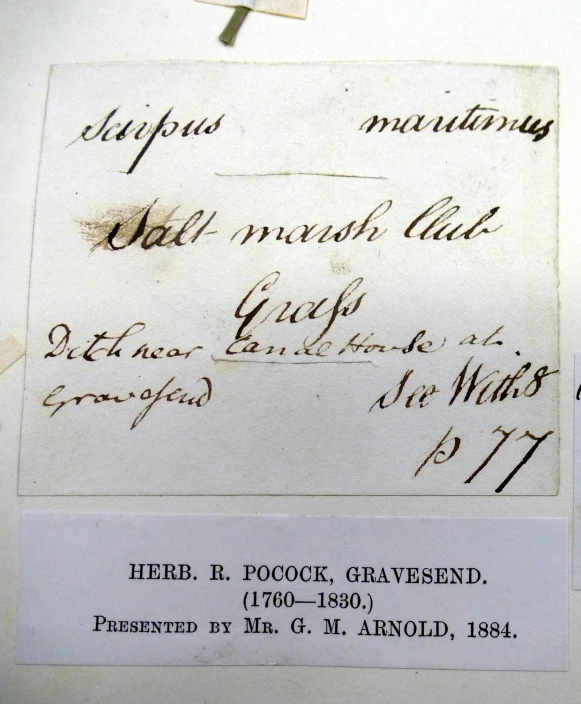 Scirpus maritimus
Salt marsh Club
Graſs
Ditch near Canal House at
Gravesend
See With 8
p 77
HERB. R. POCOCK, GRAVESEND.
(1760—1830.)
PRESENTED BY MR. G. M. ARNOLD, 1884.